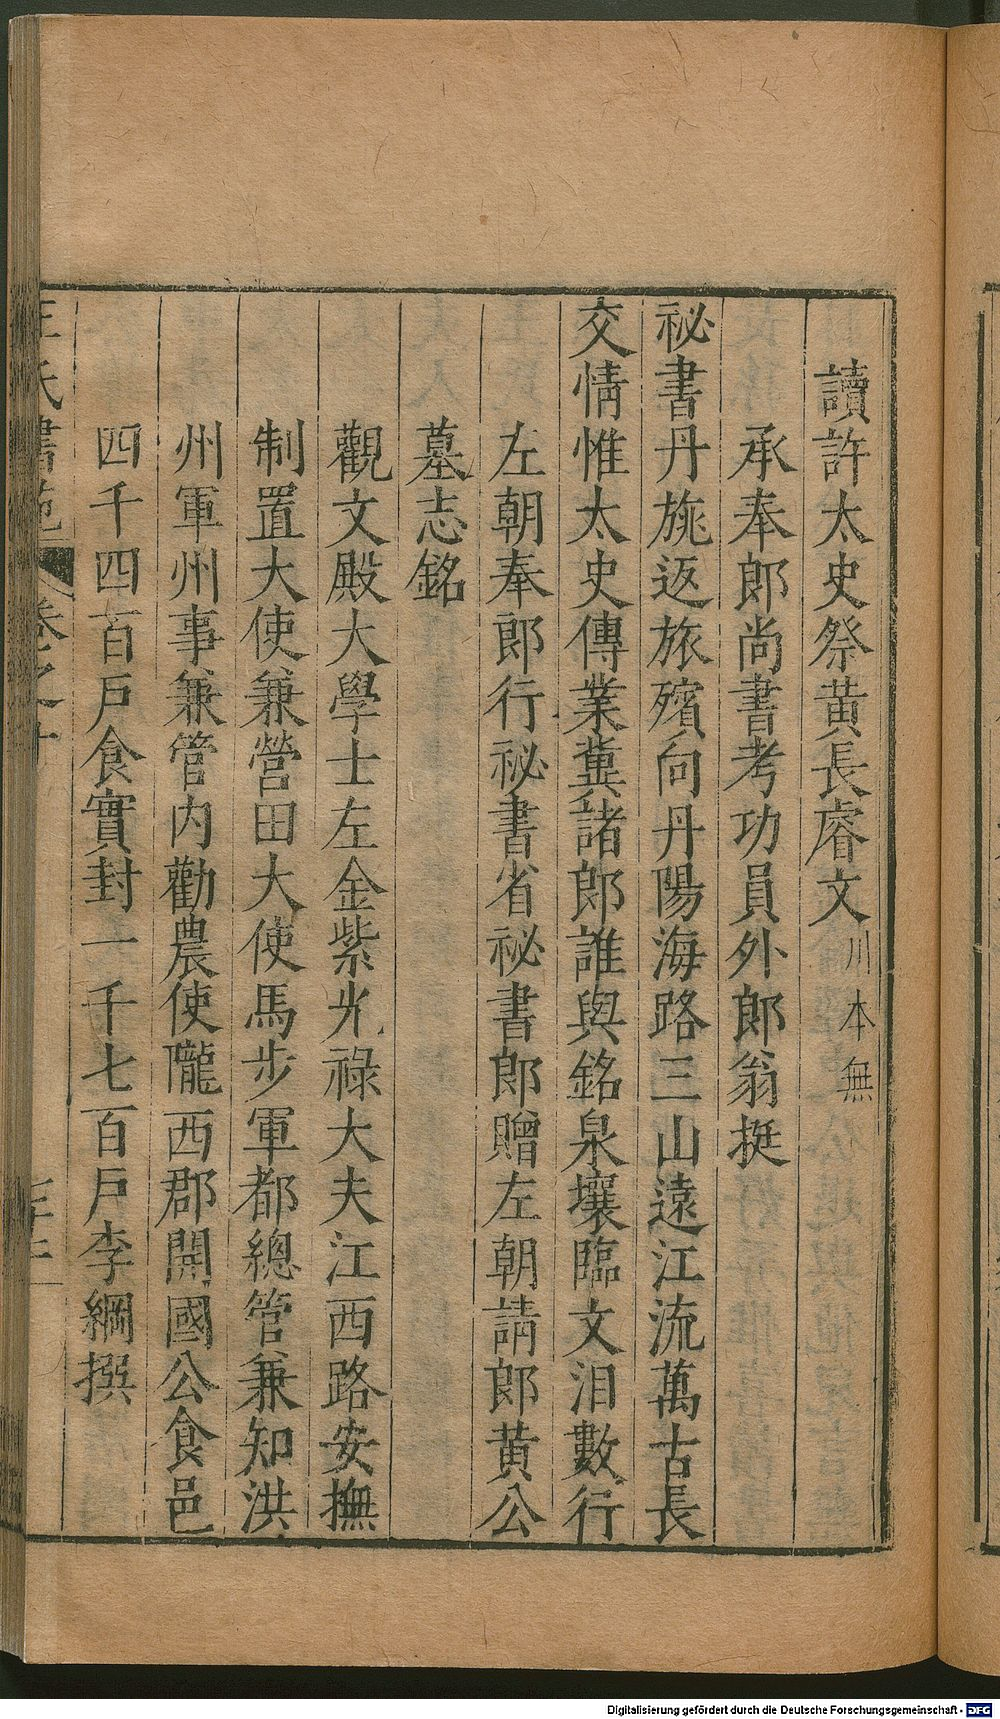 讀許太史祭黄長睿文川本無
承奉郎尚書考功員外郎翁挺
祕書丹旐返旅殯向丹陽海路三山遠江流萬古長
交情惟太史傳業冀諸郎誰與銘泉壤臨文泪數行
左朝奉郎行祕書省祕書郎贈左朝請郎黄公
墓志銘
觀文殿大學士左金紫光祿大夫江西路安撫
制置大使兼營田大使馬步軍都總管兼知洪
州軍州事兼管内勸農使隴西郡開國公食邑
四千四百戶食實封一千七百戶李綱撰
王氏書苑 卷之十
Digitalisierung gefördert durch die Deutsche Forschungsgemeinschaft - DFG